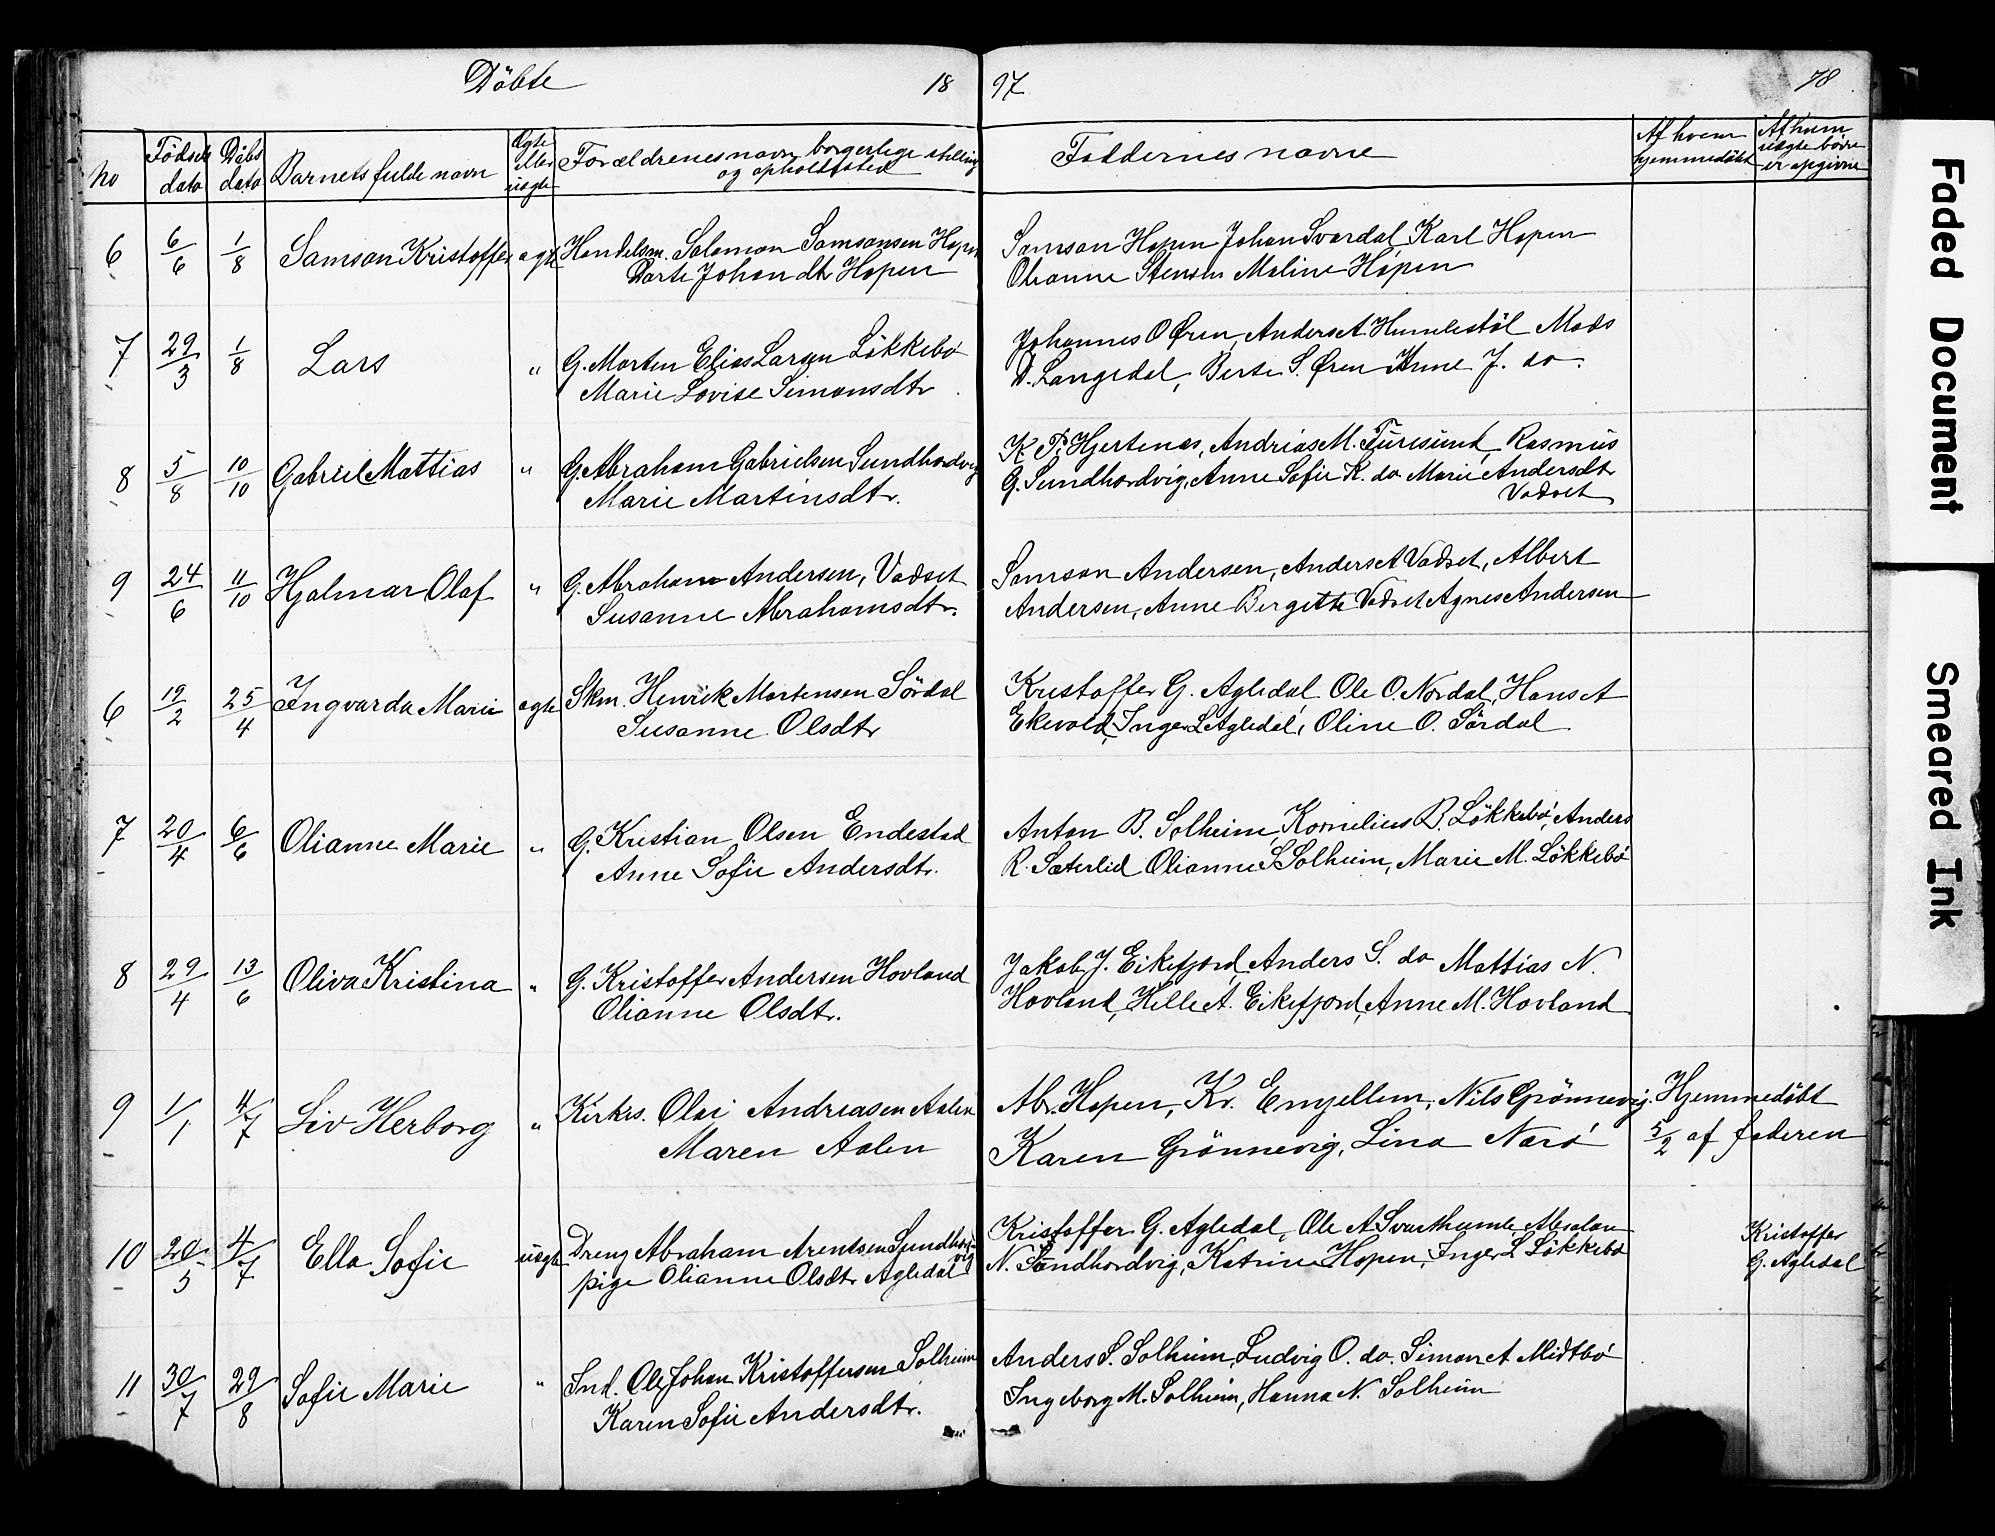 Döbte 18 97 78
No Födsels dato Döbs dato Barnets fulde navn Ægte eller uægte Forældrenes navn borgerlige stilling og opholdssted Faddernes navne Af hvem hjemmedöbt Af hvem uægte börn er opgivne
6 6/6 1/8 Samson Kristoffer egte Handelsm. Salomon Samsonsen Hopen Samson Hopen Johan Svardal Karl Hopen
Dorte Johan dtr Hopen Olianne Stensen Maline Hopen
7 29/3 1/8 Lars " G. Morten Elias Larsen Løkkebø Johannes O Øren, Anders A. Humlestøl Mads
Marie Lovise Simonsdtr D. Langedal, Berte S. Øren Anne J. do.
8 5/8 10/10 Gabriel Mattias " G. Abraham Gabrielsen Sundhordvig K. P. Hjertenæs, Andrias M. Furesund, Rasmus
Marie Martinsdtr. G. Sundhordvig, Anne Sofie K. do Marie Andersdtr
Vadset
9 24/6 11/10 Hjalmar Olaf " G. Abraham Andersen, Vadset Samson Andersen, Anders A Vadset, Albert
Susanne Abrahamsdtr. Andersen, Anne Bergitte Vadset Agnes Andersen
6 19/2 25/4 Ingvarda Marie egte Skm. Henrik Mortensen Sördal Kristoffer G. Agledal, Ole O. Nordal, Hans A
Susanne Olsdtr Ekevold, Inger L Agledal, Oline O. Sördal
7 20/4 6/6 Olianne Marie " G. Kristian Olsen Endestad Anton B. Solheim, Kornelius B. Løkkebø, Anders
Anne Sofie Andersdtr. R. Sæterlid Olianne S Solheim, Marie M. Løkkebø
8 29/4 13/6 Oliva Kristina " G. Kristoffer Andersen Hovland Jakob J. Eikefjord, Anders S. do Mattias N.
Olianne Olsdtr. Hovland, Helle A. Eikefjord, Anne M. Hovland
9 1/1 4/7 Liv Herborg " Kirkes. Olai Andreasen Aalen Abr. Hopen, Kr. Engellem, Nils Grönnevig. Hjemmedöbt
Maren Aalen Karen Grönnevig, Lina Nærö 5/2 af faderen
10 20/5 4/7 Ella Sofie uægte Dreng Abraham Arentsen Sundhordvig Kristoffer G. Agledal, Ole A Svarthumle, Absalon Kristoffer
pige Olianne Olsdtr Agledal N. Sundhordvig, Katrine Hopen, Inger L Løkkebø G. Agledal
11 30/7 29/8 Sofie Marie " Ind. Ole Johan Kristoffersen Solheim Anders S. Solheim, Ludvig O. do. Simon A Midtbø
Karen Sofie Andersdtr. Ingeborg M. Solheim, Hanna N. Solheim
Faded Document
Smeared Ink